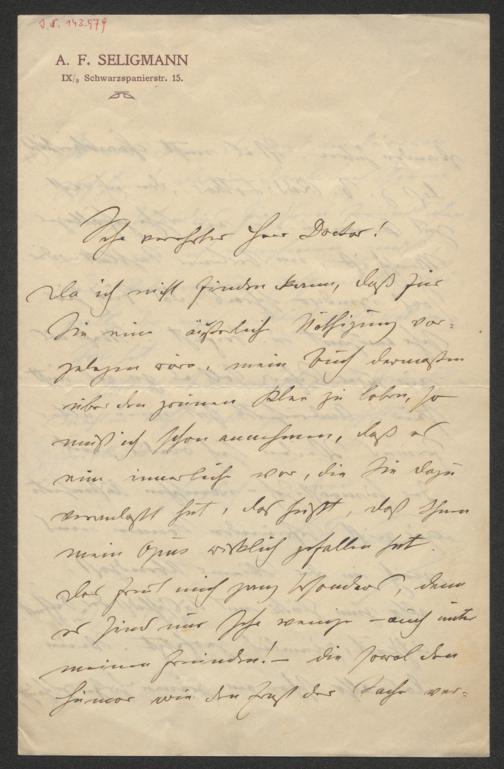 I.N. 143.979
A. F. SELIGMANN
IX/3 Schwarzspanierstr. 15.
Sehr verehrter Herr Doctor!
Da ich nicht finden kann, daß für
Sie eine äußerlich Nöthigung vor-
gelegen wäre, mein Buch dermaßen
über den grünen Klee zu loben, so
muß ich schon annehmen, daß es
eine innerliche war, die Sie dazu
veranlaßt hat, das heißt, daß Ihnen
mein Opus wirklich gefallen hat.
Das freut mich ganz besonders, denn
es sind nur sehr wenige – auch unter
meinen Freunden! – die sowol den
Humor wie den Ernst der Sache ver-